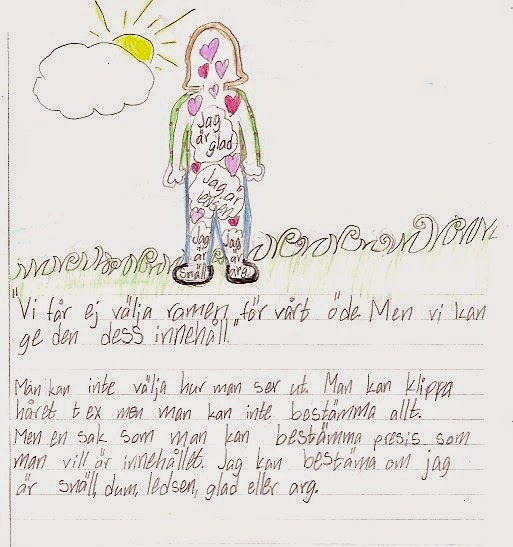 Jag
är
glad
Jag är
ledsen
Jag
är
snäll
Jag
är
arg.
"Vi får ej välja ramen för vårt öde. Men vi kan
ge den dess innehåll."
Man kan inte välja hur man ser ut. Man kan klippa
håret t ex men man kan inte bestämma allt.
Men en sak som man kan bestämma presis som
man vill är innehållet. Jag kan bestäma om jag
är snäll, dum, ledsen, glad eller arg.